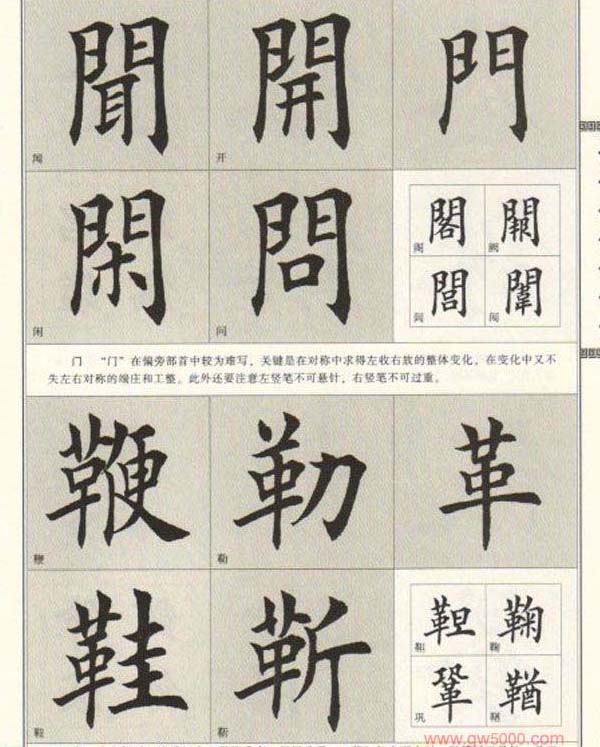 聞 開 門
闻 开
閑 問
闲 问
閣 闕
阁 阙
閭 闈
闾 闱
门 “门”在偏旁部首中较为难写，关键是在对称中求得左收右放的整体变化，在变化中又不
失左右对称的端庄和工整。此外还要注意左竖笔不可悬针，右竖笔不可过重。
鞭 勒 革
鞭 勒
鞋 靳
鞋 靳
靼 鞠
靼 鞠
鞏 鞧
巩 鞧
www.qw5000.com